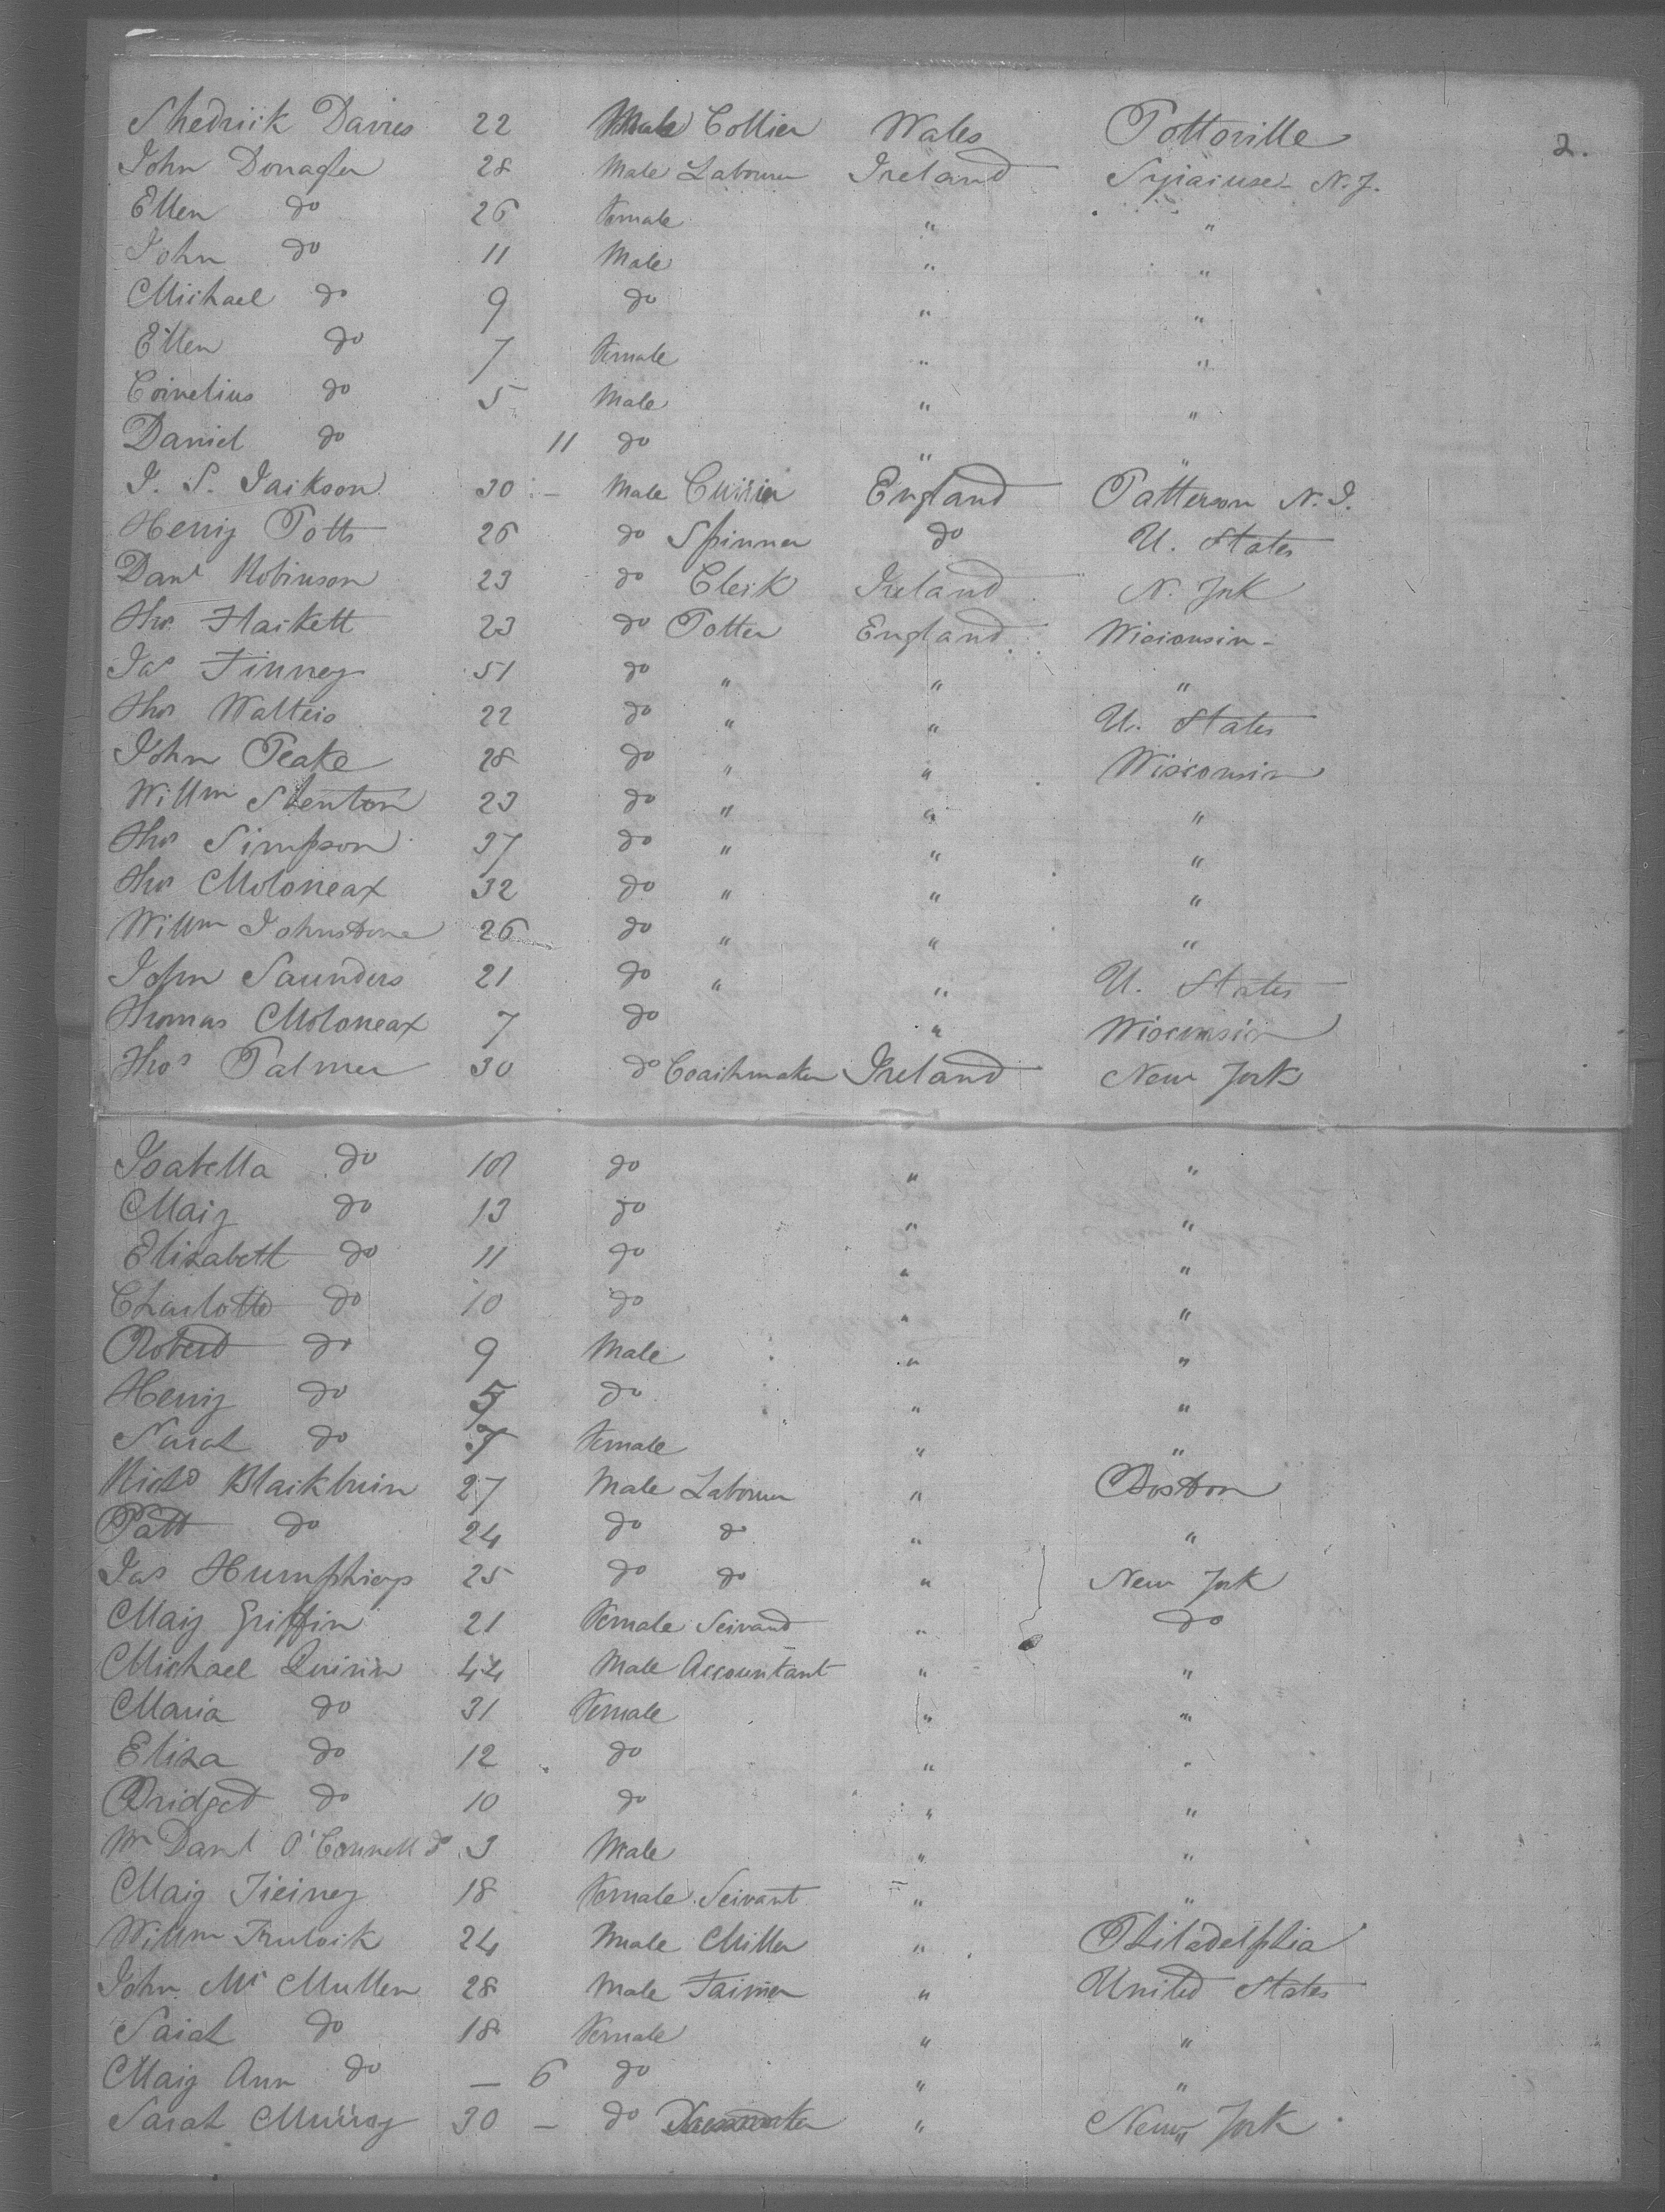 Shedrick Davies 22 Male Collier Wales Pottsville
2.
John Donagher 28 Male Labourer Ireland Syracuse N.Y.
Ellen do 26 Female " "
John do 11 Male " "
Michael do 9 do " "
Ellen do 7 Female " "
Cornelius do 5 Male " "
Daniel do 11 do " "
J. S. Jackson 30 - Male Currier England Patterson N.J.
Henry Potts 26 do Spinner do U. States
Danl Robinson 23 do Clerk Ireland N. York
Thos Hackett 23 do Potter England Wisconsin -
Jas Finney 51 do " " "
Thos Walters 22 do " " U. States
John Peake 28 do " " Wisconsin
Willm Stenton 23 do " " "
Thos Simpson 37 do " " "
Thos Moloneax 32 do " " "
Willm Johnstone 26 do " " "
John Saunders 21 do " " U. States
Thomas Moloneax 7 do " Wisconsin
Thos Palmer 30 do Coachmaker Ireland New York
Isabella do do " "
Mary do 13 do " "
Elizabeth do 11 do " "
Charlotte do 10 do " "
Robert do 9 Male " "
Henry do 5 do " "
Sarah do 7 Female " "
Richd Blackburn 27 Male Labourer " Boston
Patt do 24 do do " "
Jas Humphreys 25 do do " New York
Mary Griffin 21 Female Servand " do
Michael Quirin 44 Male Accountant " "
Maria do 31 Female " "
Eliza do 12 do " "
Bridget do 10 do " "
Wm Danl O'Connell do 3 Male " "
Mary Tierney 18 Female Servant " "
Willm 24 Male Miller " Philadelphia
John Mc Mullen 28 Male Farmer " United States
Sarah do 18 Female " "
Mary Ann do — 6 do " "
Sarah Murray 30 — do " New York